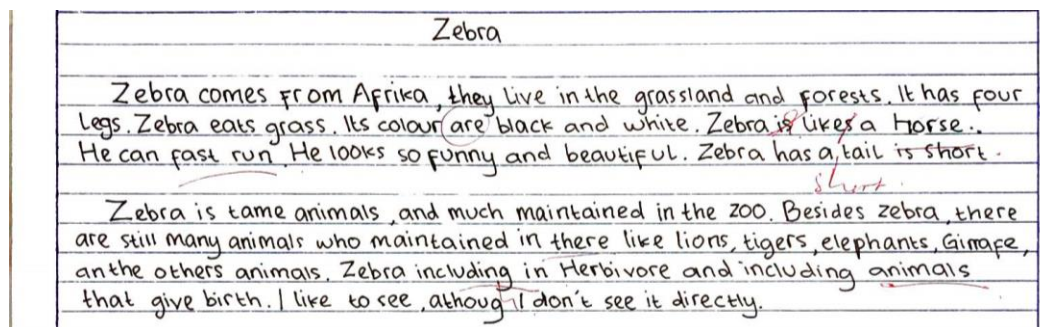 Zebra
Zebra comes from Afrika, they live in the grassland and forests. It has four
Legs. Zebra eats grass. Its colour are black and white. Zebra is likes a Horse.
He can fast run. He looks so funny and beautiful. Zebra has a tail is short.
short.
Zebra is tame animals, and much maintained in the zoo. Besides zebra, there
are still many animals who maintained in there like lions, tigers, elephants, Girrafe,
an the others animals. Zebra including in Herbivore and including animals
that give birth. I like to see, athoug I don't see it directly.